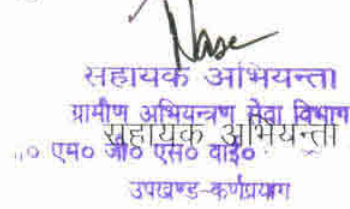 सहायक अभियन्ता
ग्रामीण अभियन्त्रण सेवा विभाग
सहायक अभियन्ता
एम० जी० एस० वाई०
उपखण्ड-कर्णप्रयाग